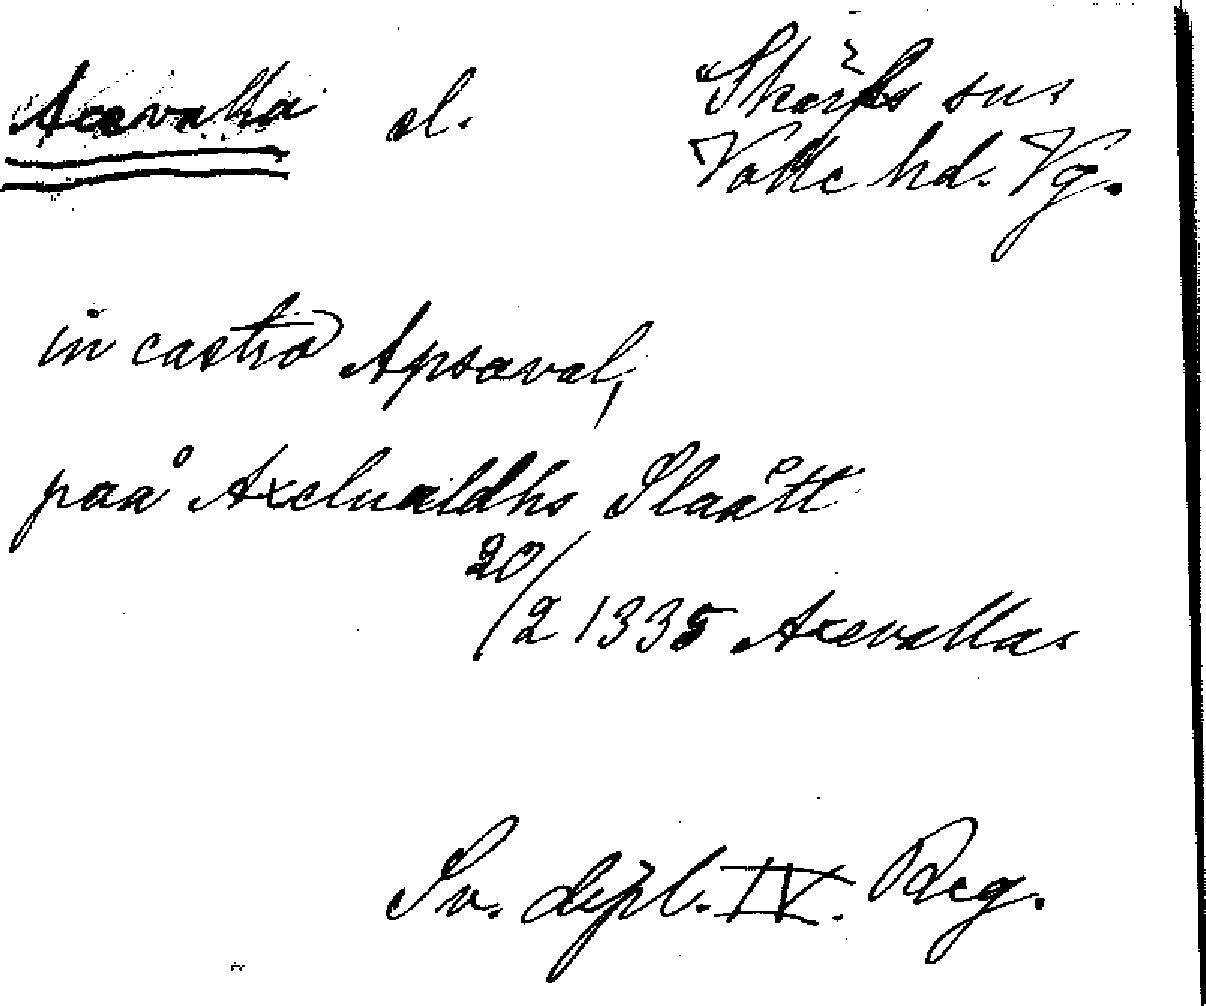 Axevalla sl. Skärfs sn
Valle hd. Vg.
in castro Apsawal,
paa Axelualdhs Slaatt
20/2 1335 Axevalla
Sv. dipl. IV. Reg.